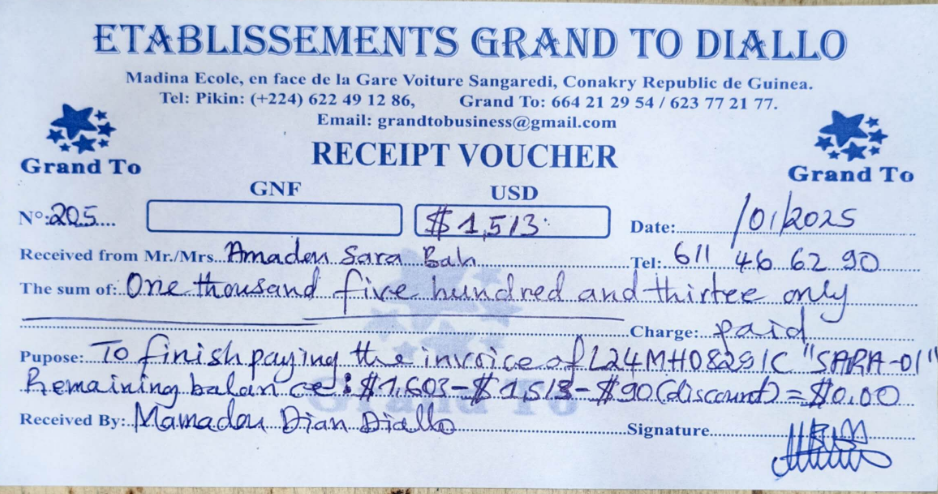 ETABLISSEMENTS GRAND TO DIALLO
Madina Ecole, en face de la Gare Voiture Sangaredi, Conakry Republic de Guinea.
Tel: Pikin: (+224) 622 49 12 86, Grand To: 664 21 29 54 / 623 77 21 77.
Email: grandtobusiness@gmail.com
Grand To
RECEIPT VOUCHER
Grand To
GNF USD
N°: 205 $1,513 Date: /01/2025
Received from Mr./Mrs. Amadou Sara Bah Tel: 611 46 62 90
The sum of: One thousand five hundred and thirtee only
Charge: paid
Pupose: To finish paying the invoice of L24MH08291C "SARA-01"
Remaining balance: $1,603-$1,513-$90(discount)=$0.00
Received By: Mamadou Dian Diallo Signature
Grand To